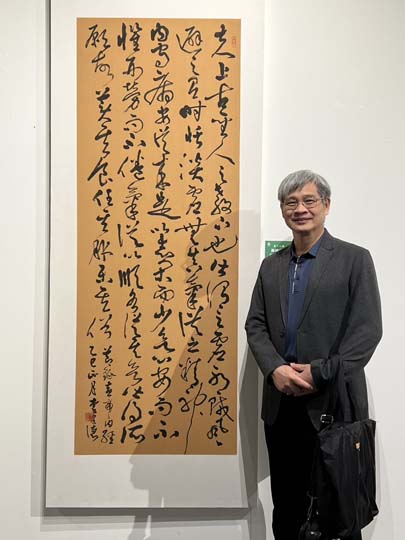 夫上古聖人之教下也皆謂之虛邪賊風
避之有時恬淡虛無真氣從之精神
內守病安從來是以志閑而少欲心安而不
懼形勞而不倦氣從以順各從其欲皆得所
願故美其食任其服樂其俗
節錄黃帝內經
乙巳正月